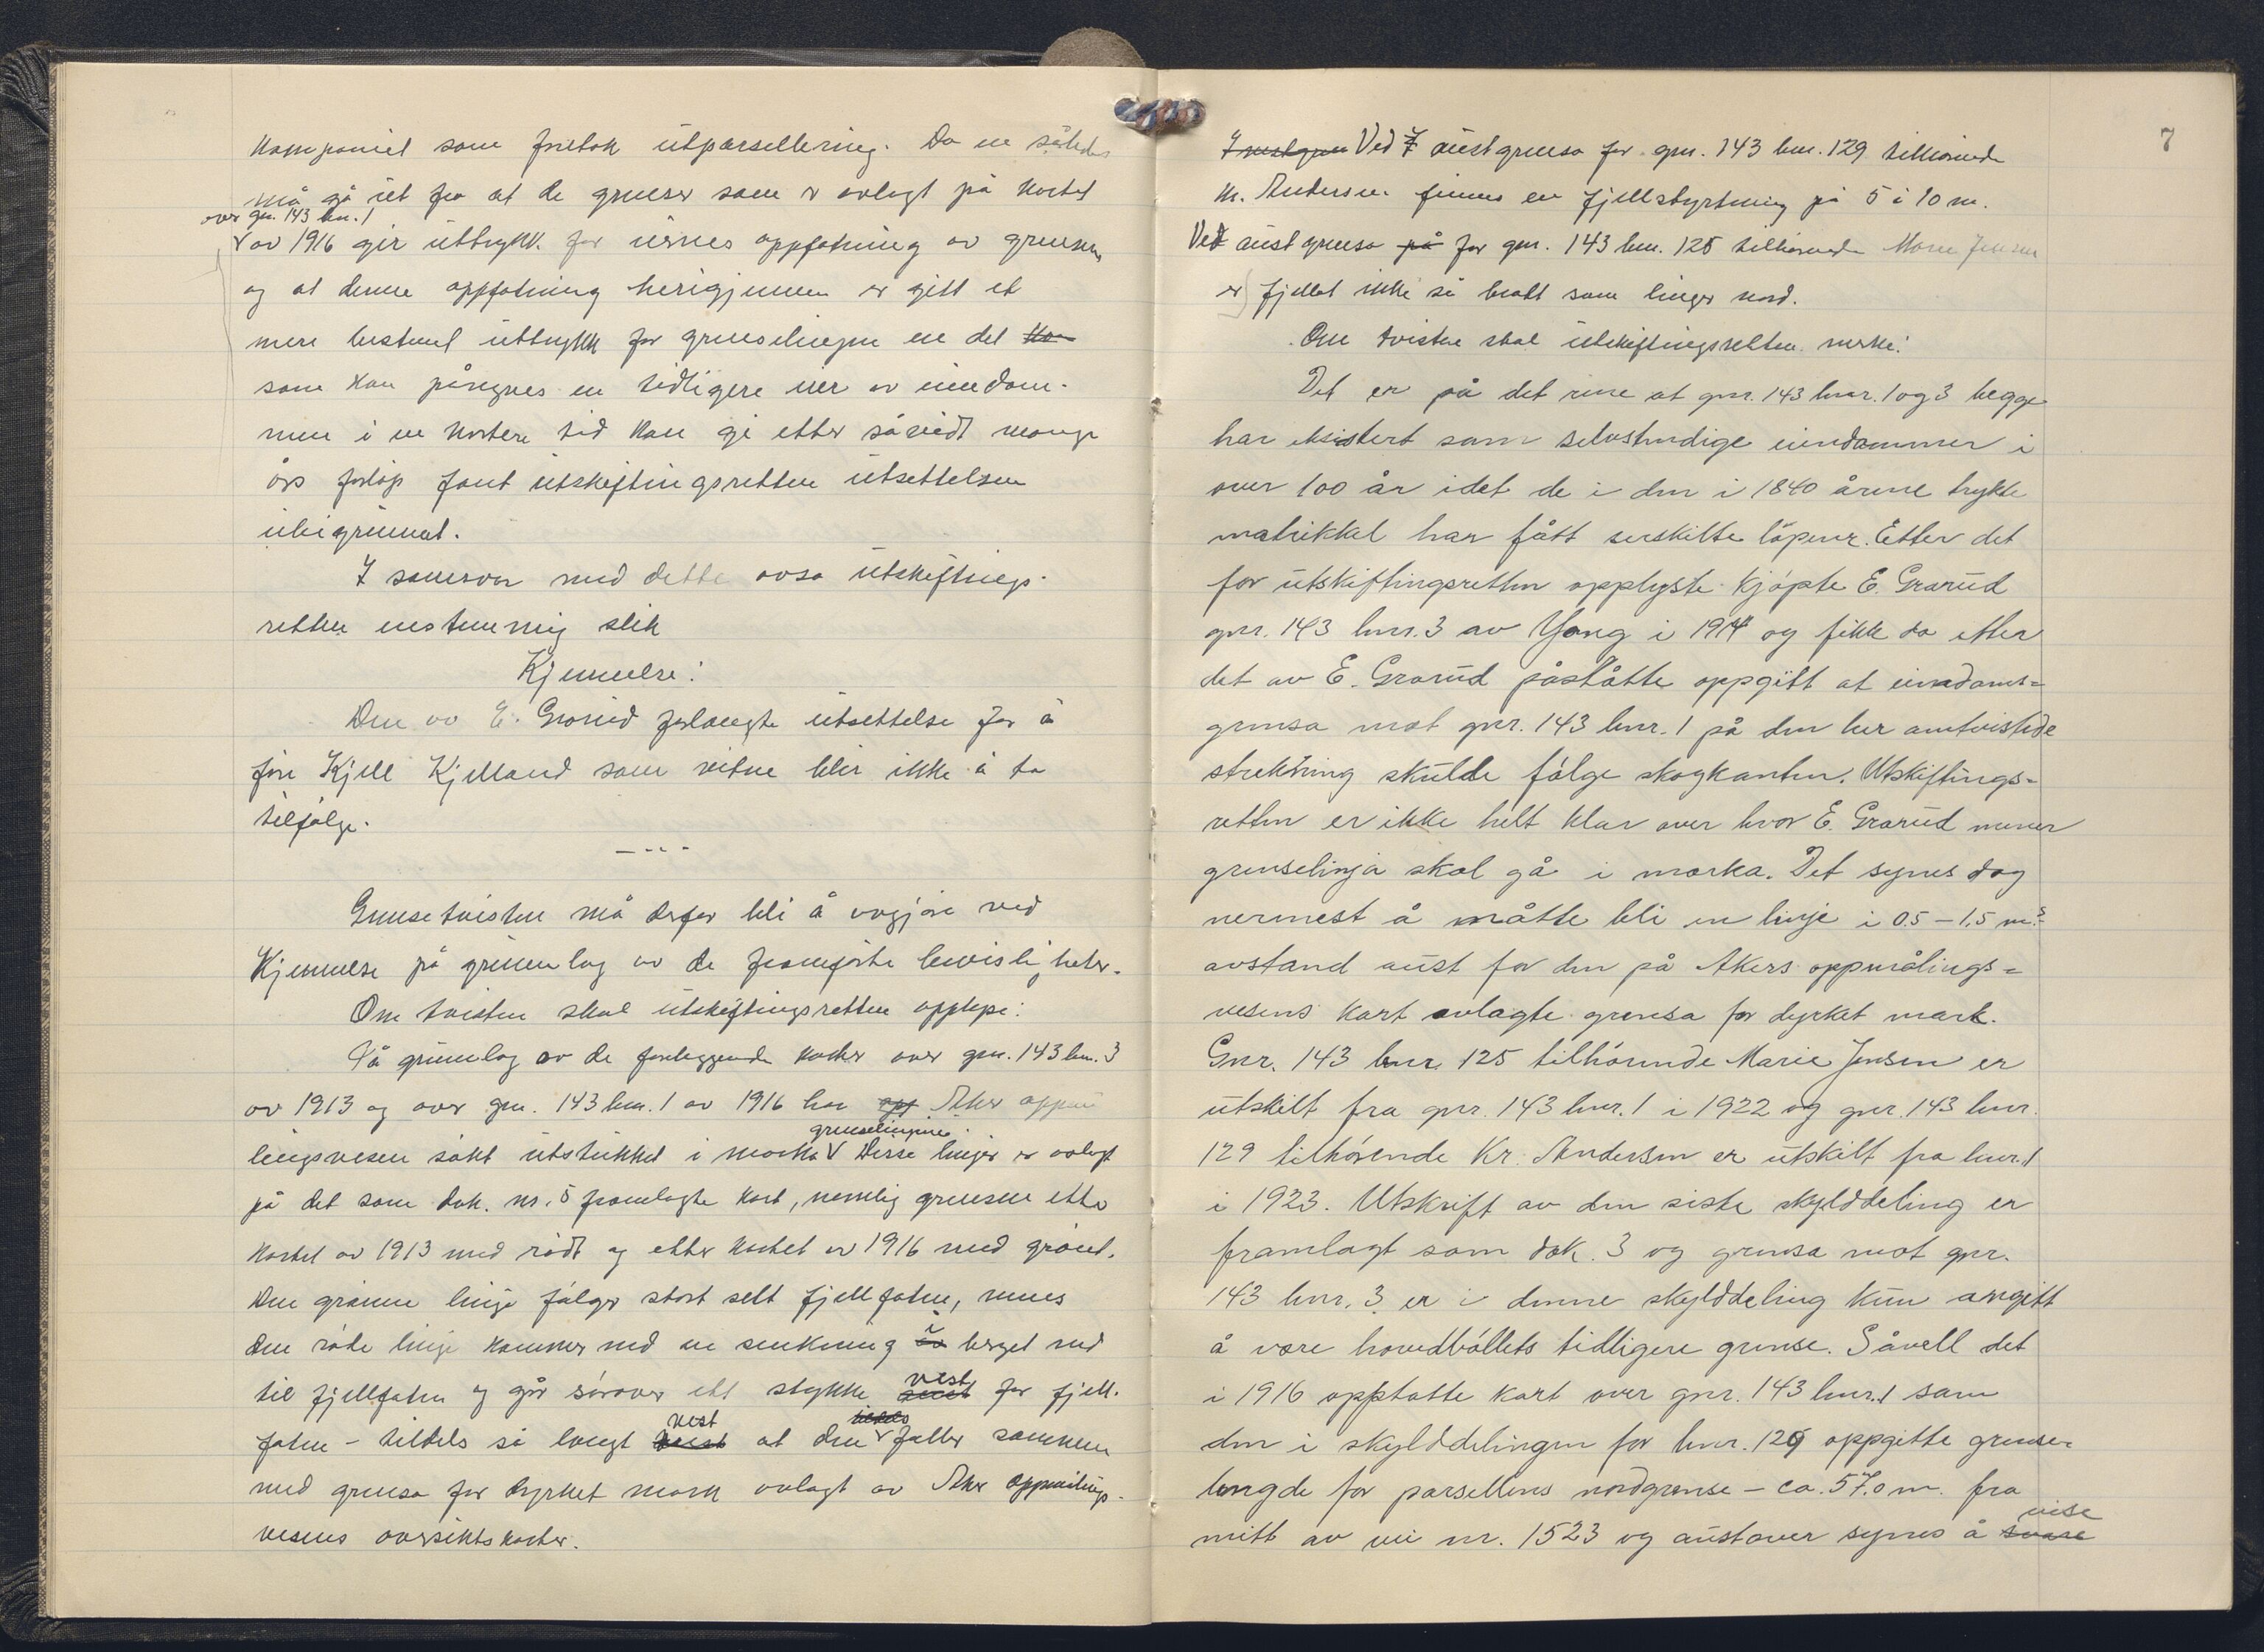 kompaniet som foretok utparsellering. Da en således
må gå ut fra at de grenser som er avlagt på kartet
over gnr. 143 bnr. 1
av 1916 gir uttrykk for eiernes oppfatning av grensen
og at denne oppfatning herigjennem er gitt et
mere bestemt uttrykk for grenselinjen en det
som kan påregnes en tidligere eier av eiendom-
men i en kortere tid kan gi etter såvidt mange
års forløp fant utskiftingsretten utsettelsen
ubegrunnet.
I samsvar med dette avsa utskiftings-
retten enstemmig slik
Kjennelse:
Den av E. Grorud forlangte utsettelse for å
føre Kjell Kjelland som vitne blir ikke å ta
tilfølge.
Grensetvisten må derfor bli å avgjøre ved
kjennelse på grunnlag av de framførte bevisligheter.
Om tvisten skal utskiftingsretten opplyse:
På grunnlag av de foreliggende karter over gnr. 143 bnr. 3
av 1913 og over gnr. 143 bnr. 1 av 1916 har opp Aker oppmå
grenselinjene.
lingsvesen søkt utstukket i marka V Disse linjer er avlagt
på det som dok. nr. 5 framlagte kart, nemlig grensene etter
kartet av 1913 med rødt og etter kartet av 1916 med grønt.
Den grønne linje følger stort sett fjellfoten, mens
den røde linje kommer ned en senkning i berget ned
til fjellfoten og går sørover ett stykke vest for fjell-
foten - tildels så langt vest at den faller sammen
med grensa for dyrket mark avlagt av Aker oppmålings-
vesens oversiktskarter.
7
I austgren Ved I austgrensa for gnr. 143 bnr. 129 tilhørende
Kr. Andersen finnes en fjellstyrtning på 5 à 10 m.
Ved austgrensa på for gnr. 143 bnr. 125 tilhørende Marie Jensen
er fjellet ikke så bratt som lenger nord.
Om tvisten skal utskiftingsretten merke:
Det er på det rene at gnr. 143 bnr. 1 og 3 begge
har eksistert som selvstendige eiendommer i
over 100 år idet de i den i 1840 årene trykte
matrikkel har fått serskilte løpenr. Etter det
for utskiftingsretten opplyste kjøpte E. Grorud
gnr. 143 bnr. 3 av Yong i 1914 og fikk da etter
det av E. Grorud påståtte oppgitt at eiendoms=
grensa mot gnr. 143 bnr. 1 på den her omtvistede
strekning skulde følge skogkanten. Utskiftings=
retten er ikke helt klar over hvor E. Grorud mener
grenselinja skal gå i marka. Det synes dog
nermest å måtte bli en linje i 0.5 - 1.5 m.s
avstand aust for den på Akers oppmålings=
vesens kart avlagte grensa for dyrket mark.
Gnr. 143 bnr. 125 tilhørende Marie Jensen er
utskilt fra gnr. 143 bnr. 1 i 1922 og gnr. 143 bnr.
129 tilhørende Kr. Andersen er utskilt fra bnr. 1
i 1923. Utskrift av den siste skylddeling er
framlagt som dok. 3 og grensa mot gnr.
143 bnr. 3 er i denne skylddeling kun angitt
å være hovedbøllets tidligere grense. Såvell det
i 1916 opptatte kart over gnr. 143 bnr. 1 som
den i skylddelingen for bnr. 129 oppgitte grense-
lengde for parsellens nordgrense - ca. 57.0 m. fra
mitt av vei nr. 1523 og austover synes å svare vise